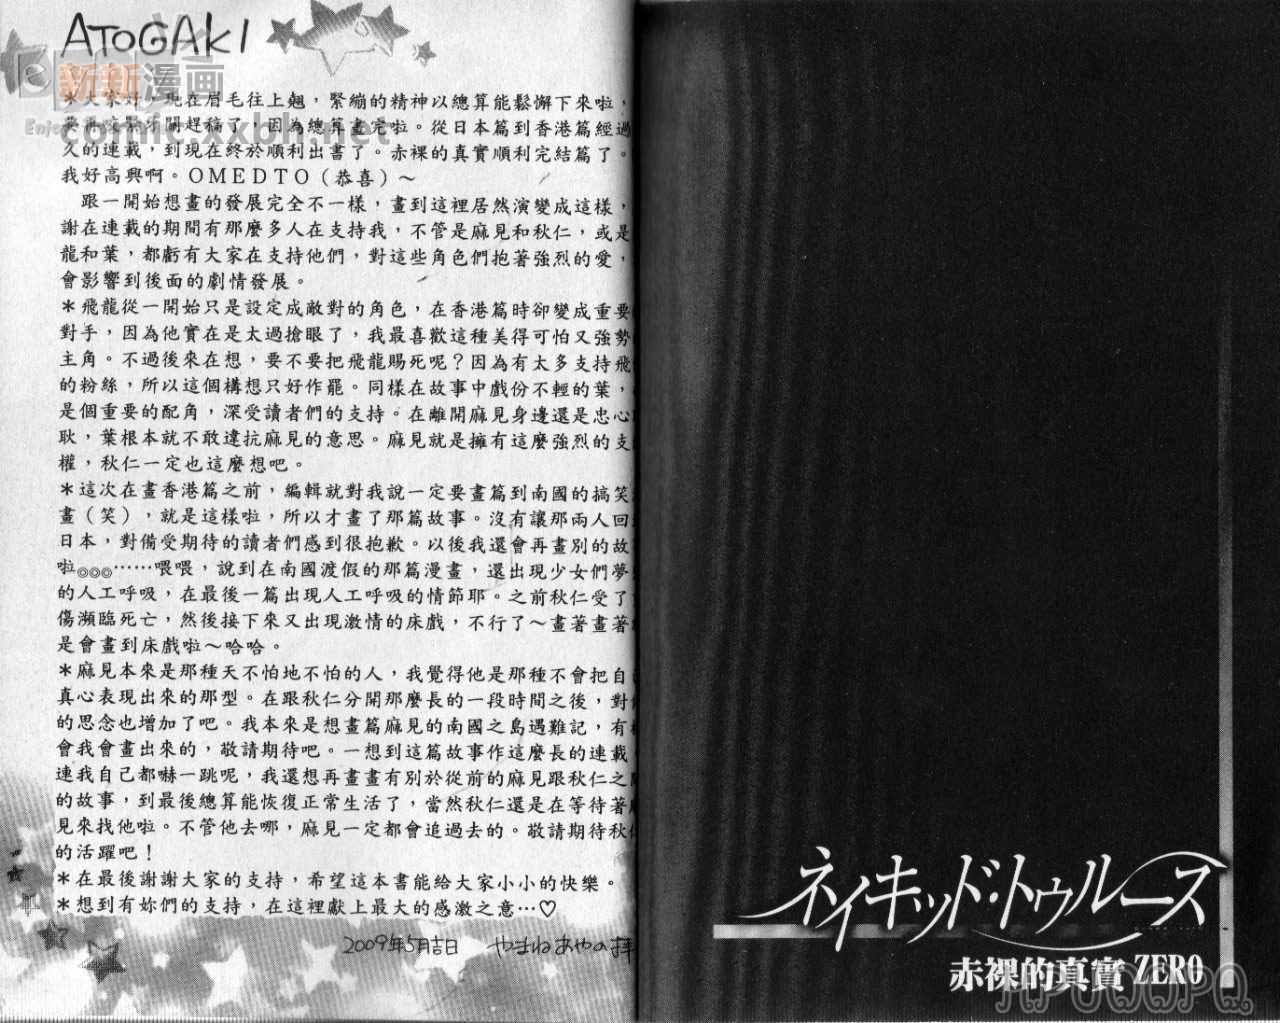 ATOGAKI
新新漫画
comic.xxbh.net
＊大家好，現在眉毛往上翹，緊繃的精神以總算能鬆懈下來啦，
緊牙關趕稿了，因為總算畫完啦。從日本篇到香港篇經過
久的連載，到現在終於順利出書了。赤裸的真實順利完結篇了。
我好高興啊。OMEDTO（恭喜）～
跟一開始想畫的發展完全不一樣，畫到這裡居然演變成這樣，
謝在連載的期間有那麼多人在支持我，不管是麻見和秋仁，或是
龍和葉，都虧有大家在支持他們，對這些角色們抱著強烈的愛，
會影響到後面的劇情發展。
＊飛龍從一開始只是設定成敵對的角色，在香港篇時卻變成重要
對手，因為他實在是太過搶眼了，我最喜歡這種美得可怕又強勢
主角。不過後來在想，要不要把飛龍賜死呢？因為有太多支持飛
的粉絲，所以這個構想只好作罷。同樣在故事中戲份不輕的葉，
是個重要的配角，深受讀者們的支持。在離開麻見身邊還是忠心
耿，葉根本就不敢違抗麻見的意思。麻見就是擁有這麼強烈的支
權，秋仁一定也這麼想吧。
＊這次在畫香港篇之前，編輯就對我說一定要畫篇到南國的搞笑
畫（笑），就是這樣啦，所以才畫了那篇故事。沒有讓那兩人回
日本，對備受期待的讀者們感到很抱歉。以後我還會再畫別的故
啦◎◎◎……喂喂，說到在南國渡假的那篇漫畫，還出現少女們夢
的人工呼吸，在最後一篇出現人工呼吸的情節耶。之前秋仁受了
傷瀕臨死亡，然後接下來又出現激情的床戲，不行了～畫著畫著
是會畫到床戲啦～哈哈。
＊麻見本來是那種天不怕地不怕的人，我覺得他是那種不會把自
真心表現出來的那型。在跟秋仁分開那麼長的一段時間之後，對
的思念也增加了吧。我本來是想畫篇麻見的南國之島遇難記，有
會我會畫出來的，敬請期待吧。一想到這篇故事作這麼長的連載
連我自己都嚇一跳呢，我還想再畫畫有別於從前的麻見跟秋仁之
的故事，到最後總算能恢復正常生活了，當然秋仁還是在等待著
見來找他啦。不管他去哪，麻見一定都會追過去的。敬請期待秋
的活躍吧！
＊在最後謝謝大家的支持，希望這本書能給大家小小的快樂。
＊想到有妳們的支持，在這裡獻上最大的感激之意…♡
2009年5月吉日 やまねあやの拝
ネイキッド・トゥルース
赤裸的真實 ZERO